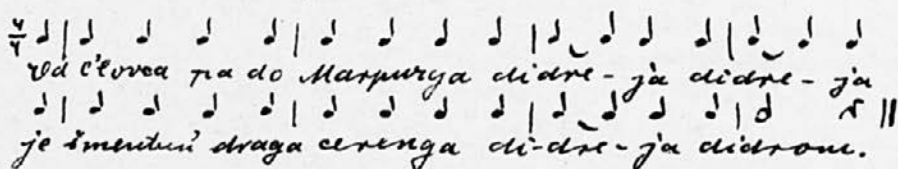 Od Človca pa do Marpurga didre-ja didre-ja
je šmentun draga cerenga di-dre-ja didrom.